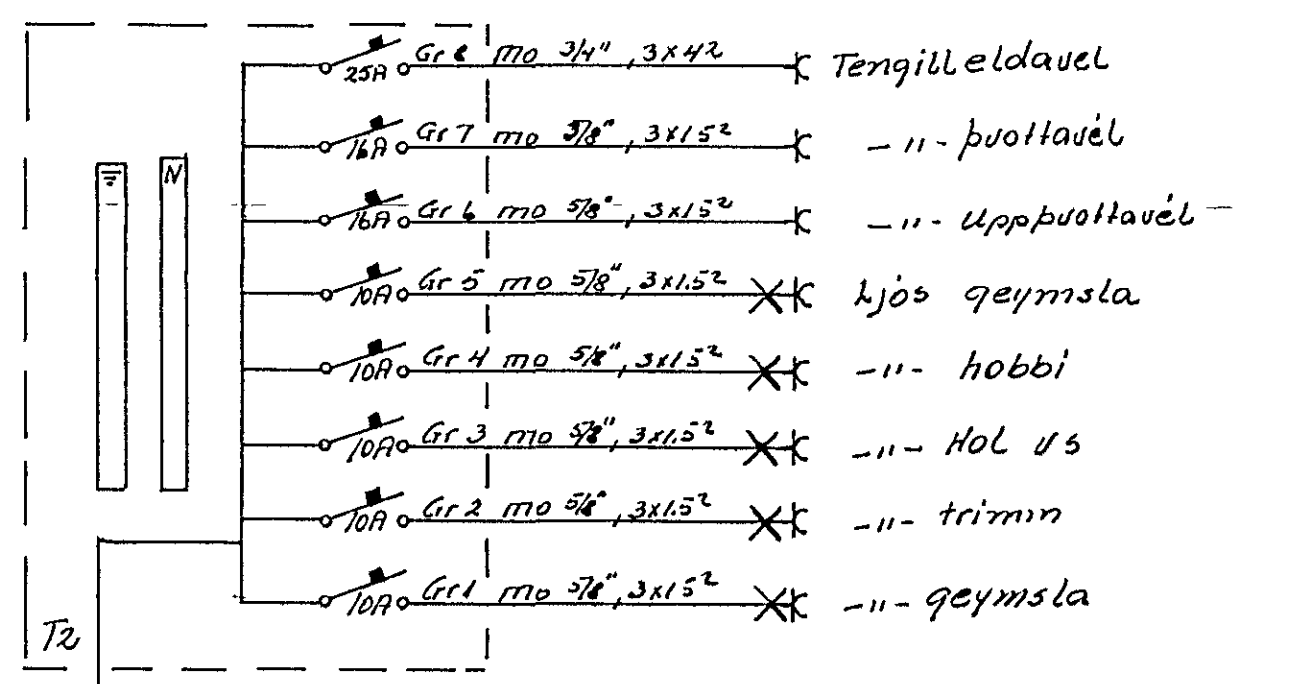 25A Gr 8 mo 3/4", 3x4² Tengill eldavel
16A Gr 7 mo 5/8", 3x1.5² -"- þvottavél
16A Gr 6 mo 5/8", 3x1.5² -"- uppþvottavél
N
10A Gr 5 mo 5/8", 3x1.5² Ljós geymsla
10A Gr 4 mo 5/8", 3x1.5² -"- hobbi
10A Gr 3 mo 5/8", 3x1.5² -"- Hol
10A Gr 2 mo 5/8", 3x1.5² -"- trimm
10A Gr 1 mo 5/8", 3x1.5² -"- geymsla
T2